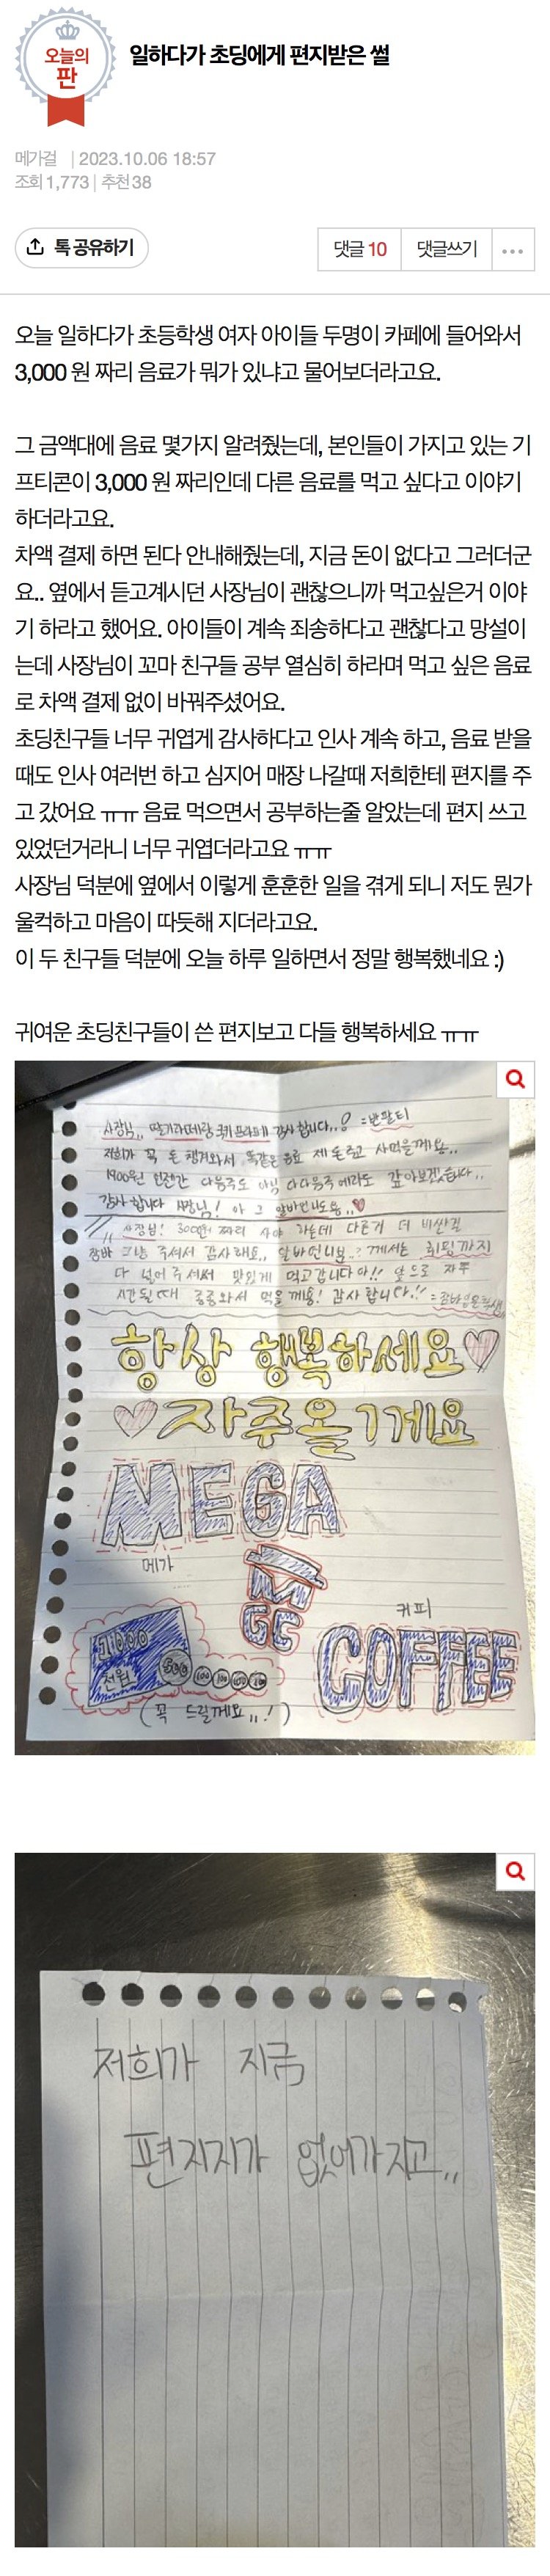 오늘의
판
일하다가 초딩에게 편지받은 썰
메가걸 | 2023.10.06 18:57
조회 1,773 | 추천 38
톡 공유하기
댓글 10
댓글쓰기
...
오늘 일하다가 초등학생 여자 아이들 두명이 카페에 들어와서
3,000 원 짜리 음료가 뭐가 있냐고 물어보더라고요.
그 금액대에 음료 몇가지 알려줬는데, 본인들이 가지고 있는 기
프티콘이 3,000 원 짜리인데 다른 음료를 먹고 싶다고 이야기
하더라고요.
차액 결제 하면 된다 안내해줬는데, 지금 돈이 없다고 그러더군
요.. 옆에서 듣고계시던 사장님이 괜찮으니까 먹고싶은거 이야
기 하라고 했어요. 아이들이 계속 죄송하다고 괜찮다고 망설이
는데 사장님이 꼬마 친구들 공부 열심히 하라며 먹고 싶은 음료
로 차액 결제 없이 바꿔주셨어요.
초딩친구들 너무 귀엽게 감사하다고 인사 계속 하고, 음료 받을
때도 인사 여러번 하고 심지어 매장 나갈때 저희한테 편지를 주
고 갔어요 ㅠㅠ 음료 먹으면서 공부하는줄 알았는데 편지 쓰고
있었던거라니 너무 귀엽더라고요 ㅠㅠ
사장님 덕분에 옆에서 이렇게 훈훈한 일을 겪게 되니 저도 뭔가
울컥하고 마음이 따듯해 지더라고요.
이 두 친구들 덕분에 오늘 하루 일하면서 정말 행복했네요 :)
귀여운 초딩친구들이 쓴 편지보고 다들 행복하세요 ㅠㅠ
사장님.. 딸기라떼랑 쿠키프라페 감사합니다..! =반팔티
저희가 꼭 돈 챙겨와서 똑같은 음료 제 돈주고 사먹을께요..
1900원 언젠간 다음주도 아님 다다음주에라도 갚아보겠습니다..
감사합니다 사장님! 아 그 알바언니도용..♥
사장님! 3000원 짜리 사야 하는데 다른거 더 비싼걸
그냥 주셔서 감사해요.. 알바언니분..? 께서는 휘핑까지
다 넣어주셔서 맛있게 먹고갑니다아!! 앞으로 자주
시간될 때 종종와서 먹을께용! 감사합니다!!
항상 행복하세요♡
♡자주올게요
MEGA
메가
M
GC
커피
COFFEE
1000
천원
500
100 100 100 100
(꼭 드릴게요..!)
저희가 지금
편지지가 없어가지고..